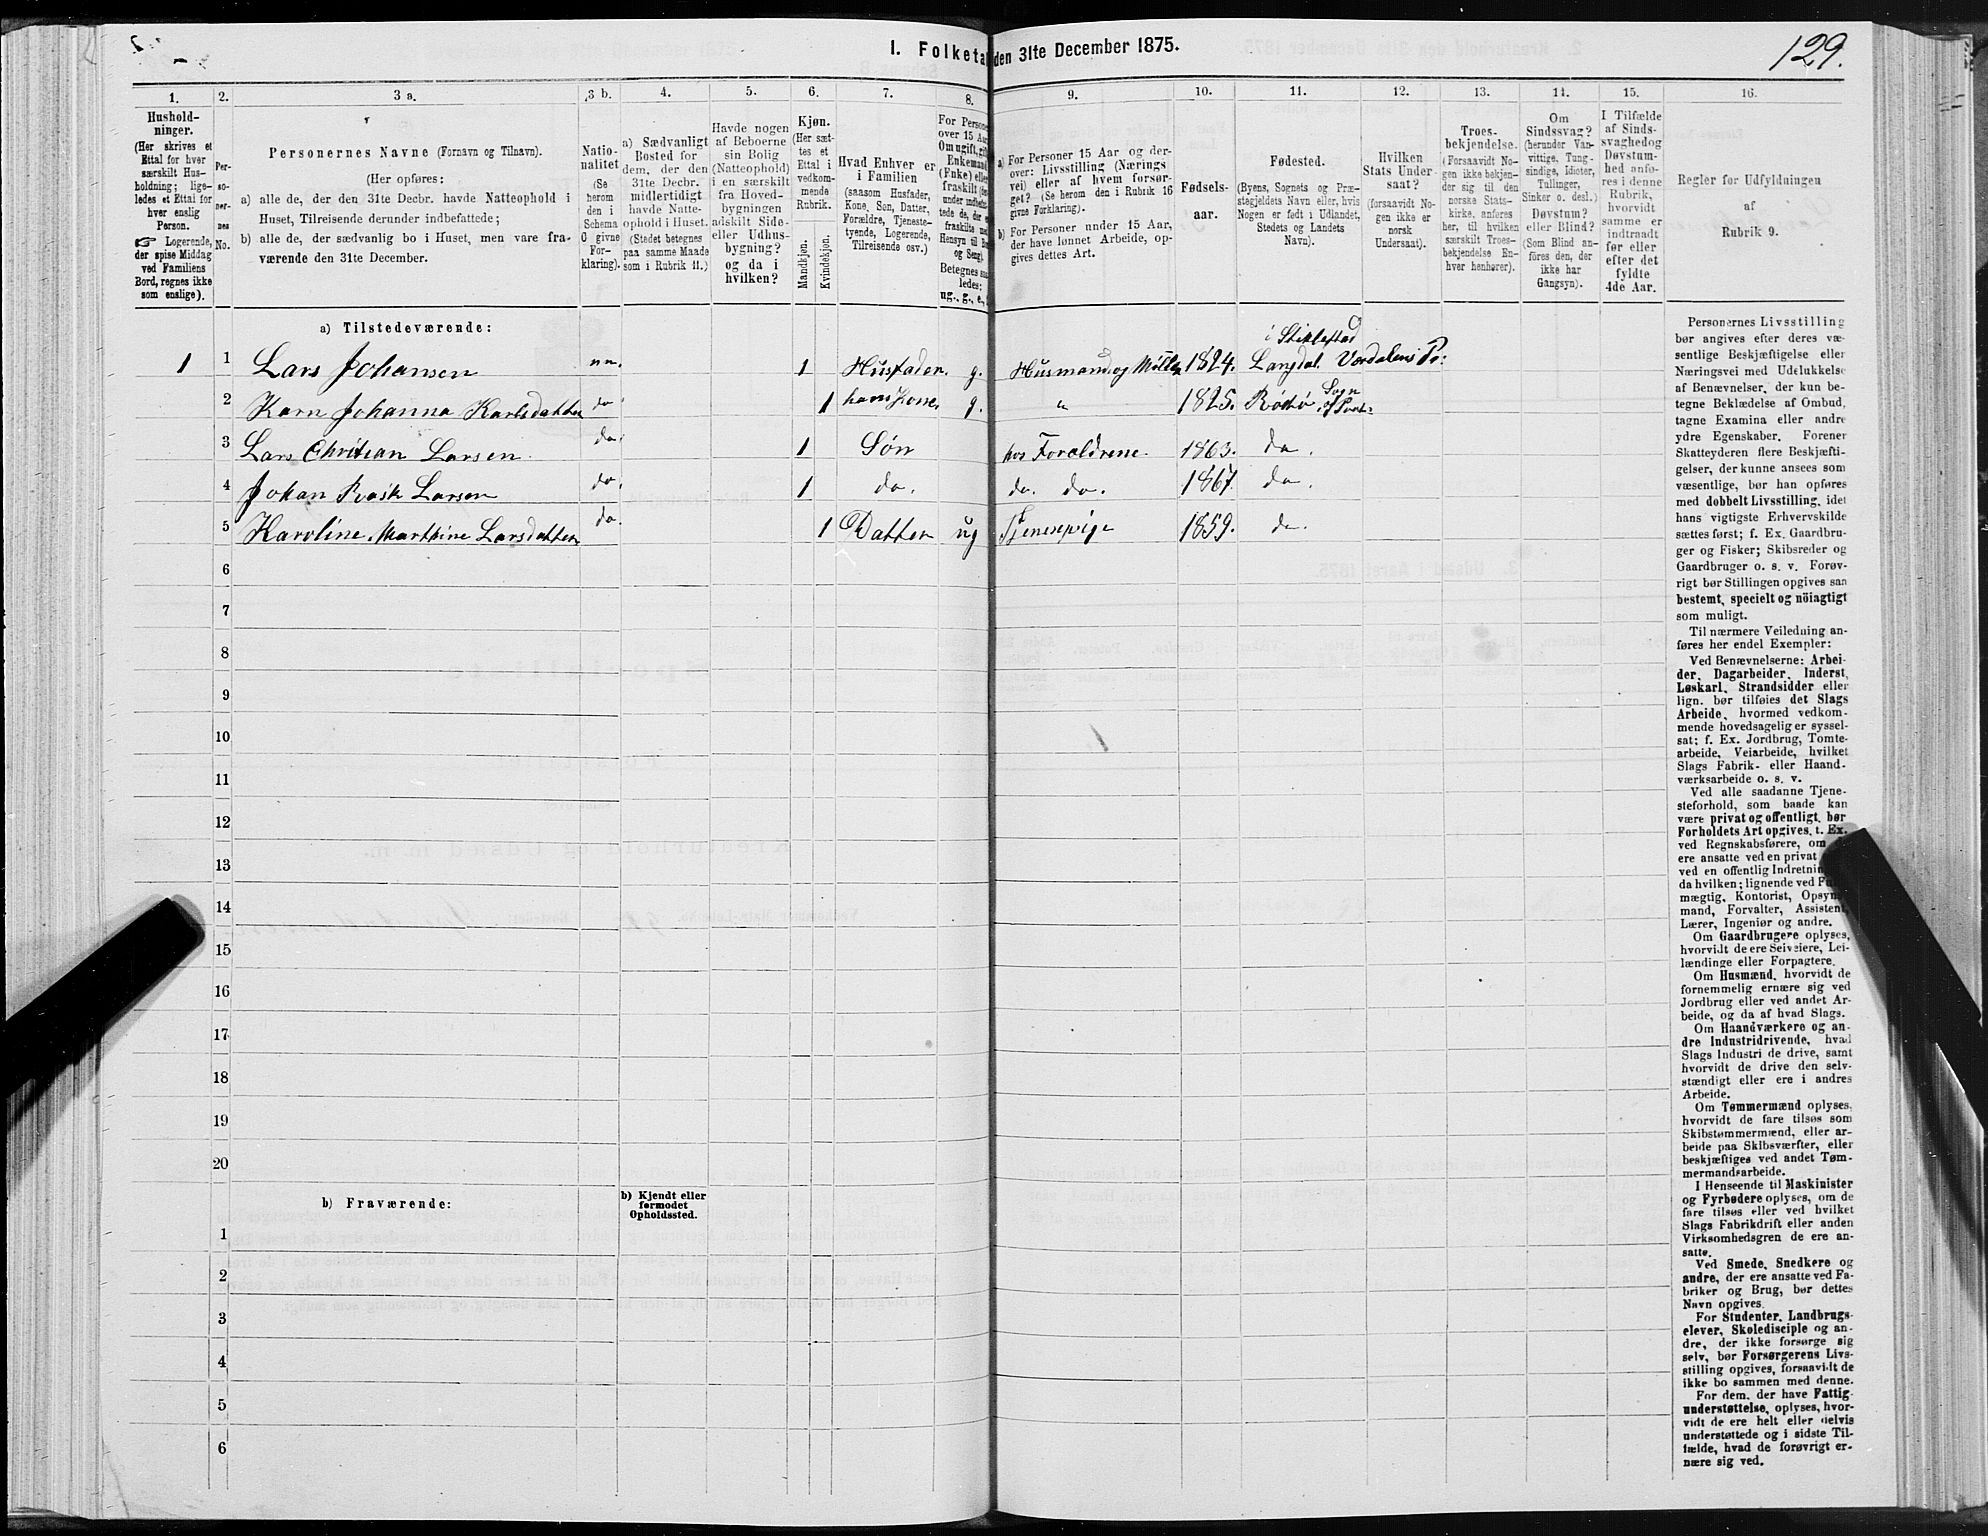 129.
I. Folketal den 31te December 1875.
1.
Hushold-
ninger.
(Her skrives et
Ettal for hver
særskilt Hus-
holdning; lige-
ledes et Ettal for
hver enslig
Person.
☞ Logerende,
der spise Middag
ved Familiens
Bord, regnes ikke
som enslige).
2.
Per-
so-
ner-
nes
No.
3 a.
Personernes Navne (Fornavn og Tilnavn).
(Her opføres:
a) alle de, der den 31te Decbr. havde Natteophold i
Huset, Tilreisende derunder indbefattede;
b) alle de, der sædvanlig bo i Huset, men vare fra-
værende den 31te December.
3 b.
Natio-
nalitet
(Se
herom
den i
Schema
O givne
For-
klaring).
4.
a) Sædvanligt
Bosted for
dem, der den
31te Decbr.
midlertidigt
havde Natte-
ophold i Huset.
(Stedet betegnes
paa samme Maade
som i Rubrik 11.)
5.
Havde nogen
af Beboerne
sin Bolig
(Natteophold)
i en særskilt
fra Hoved-
bygningen
adskilt Side-
eller Udhus-
bygning?
og da i
hvilken?
6.
Kjøn.
(Her sæt-
tes et
Ettal i
vedkom-
mende
Rubrik.
Mandkjøn.
Kvindekjøn.
7.
Hvad Enhver er
i Familien
(saasom Husfader,
Kone, Søn, Datter,
Forældre, Tjeneste-
tyende, Logerende,
Tilreisende osv.)
8.
For Persone
over 15 Aar
Om ugift, gift
Enkemand
(Enke) eller
fraskilt
Betegnes saa
ledes:
ug., g., e.,
9.
a) For Personer 15 Aar og der-
over: Livsstilling (Nærings
vei) eller af hvem forsør-
get? (Se herom den i Rubrik 16
givne Forklaring).
b) For Personer under 15 Aar,
der have lønnet Arbeide, op-
gives dettes Art.
10.
Fødsels-
aar.
11.
Fødested.
(Byens, Sognets og Præ-
stegjeldets Navn eller, hvis
Nogen er født i Udlandet,
Stedets og Landets
Navn).
12.
Hvilken
Stats Under-
saat?
(forsaavidt No-
gen ikke er
norsk
Undersaat).
13.
Troes-
bekjendelse.
(Forsaavidt No-
gen ikke bekjen-
der sig til den
norske Stats-
kirke, anføres
her, til hvilken
særskilt Troes-
bekjendelse En-
hver henhører).
14.
Om
Sindssvag?
(herunder Van-
vittige, Tung-
sindige, Idioter,
Tullinger,
Sinker o. desl.)
Døvstum?
eller Blind?
(Som Blind an-
føres den, der
ikke har
Gangsyn).
15.
I Tilfælde
af Sinds-
svaghed og
Døvstum-
hed anfø-
res i denne
Rubrik,
hvorvidt
samme er
indtraadt
før eller
efter det
fyldte
4de Aar.
16.
Regler for Udfyldningen
af
Rubrik 9.
a) Tilstedeværende:
1 1 Lars Johansen nn. 1 Husfader g. Husmand og Møller 1824. i Stiklestad Langdal. Værdalens Pr:
2 Karn Johanna Karlsdatter do 1 hans Kone. g. " 1825. Rødø Sogn og Præst:
3 Lars Chritian Larsen. do. 1 Søn hos Forældrene 1863. do.
4 Johan Rask Larsen do. 1 do. do. do. 1867. do.
5 Karoline Marthine Larsdatter do. 1 Datter ug Tjenespige 1859. do.
6
7
8
9
10
11
12
13
14
15
16
17
18
19
20
b) Fraværende:
b) Kjendt eller
formodet
Opholdssted.
1
2
3
4
5
6
Personernes Livsstilling
bør angives efter deres væ-
sentlige Beskjæftigelse eller
Næringsvei med Udelukkelse
af Benævnelser, der kun be-
tegne Beklædelse af Ombud,
tagne Examina eller andre
ydre Egenskaber. Forener
Skatteyderen flere Beskjæfti-
gelser, der kunne ansees som
væsentlige, bør han opføres
med dobbelt Livsstilling, idet
hans vigtigste Erhvervskilde
sættes først; f. Ex. Gaardbru-
ger og Fisker; Skibsreder og
Gaardbruger o. s. v. Forøv-
rigt bør Stillingen opgives saa
bestemt, specielt og nöiagtigt
som muligt.
Til nærmere Veiledning an-
føres her endel Exempler:
Ved Benævnelserne: Arbei-
der, Dagarbeider, Inderst,
Løskarl, Strandsidder eller
lign. bør tilføies det Slags
Arbeide, hvormed vedkom-
mende hovedsagelig er syssel-
sat; f. Ex. Jordbrug, Tomte-
arbeide, Veiarbeide, hvilket
Slags Fabrik- eller Haand-
værksarbeide o. s. v.
Ved alle saadanne Tjene-
steforhold, som baade kan
være privat og offentligt, bør
Forholdets Art opgives, t. Ex.
ved Regnskabsførere, om
ere ansatte ved en privat
ved en offentlig Indretnin
da hvilken; lignende ved
mægtig, Kontorist, Opsyns
mand, Forvalter, Assistent,
Lærer, Ingeniør og andre.
Om Gaardbrugere oplyses,
hvorvidt de ere Selveiere, Lei-
lændinge eller Forpagtere.
Om Husmænd, hvorvidt de
fornemmelig ernære sig ved
Jordbrug eller ved andet Ar-
beide, og da af hvad Slags.
Om Haandværkere og an-
dre Industridrivende, hvad
Slags Industri de drive, samt
hvorvidt de drive den selv-
stændigt eller ere i andres
Arbeide.
Om Tømmermænd oplyses,
hvorvidt de fare tilsøs som
Skibstømmermænd, eller ar-
beide paa Skibsværfter, eller
beskjæftiges ved andet Tøm-
mermandsarbeide.
I Henseende til Maskinister
og Fyrbødere oplyses, om de
fare tilsøs eller ved hvilket
Slags Fabrikdrift eller anden
Virksomhedsgren de ere an-
satte.
Ved Smede, Snedkere og
andre, der ere ansatte ved Fa-
briker og Brug, bør dettes
Navn opgives.
For Studenter, Landbrugs-
elever, Skoledisciple og an-
dre, der ikke forsørge sig
selv, bør Forsørgerens Livs-
stilling opgives, forsaavidt de
ikke bo sammen med denne.
For dem, der have Fattig-
understøttelse, oplyses, hvor-
vidt de ere helt eller delvis
understøttede og i sidste Til-
fælde, hvad de forøvrigt er-
nære sig ved.